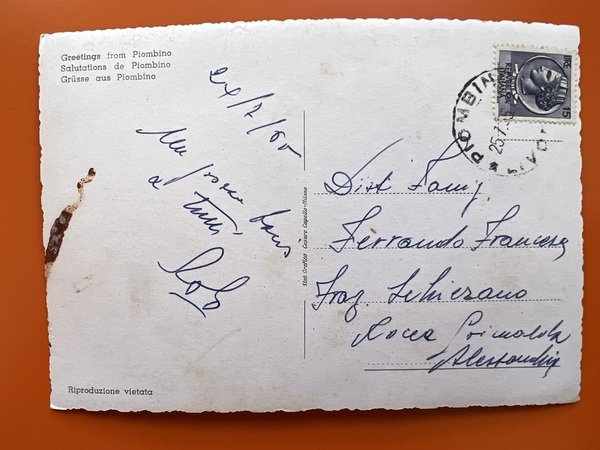 Greetings from Piombino
Salutations de Piombino
Grüsse aus Piombino
24/7/60
Un grosso bacio
a tutti
Dist Famig
Ferrando Francesco
Fraz. Schierano
Rocca Grimalda
Alessandria
Stab. Grafico Cesare Capello - Milano
Riproduzione vietata
PIOMBINO
25.7.
15